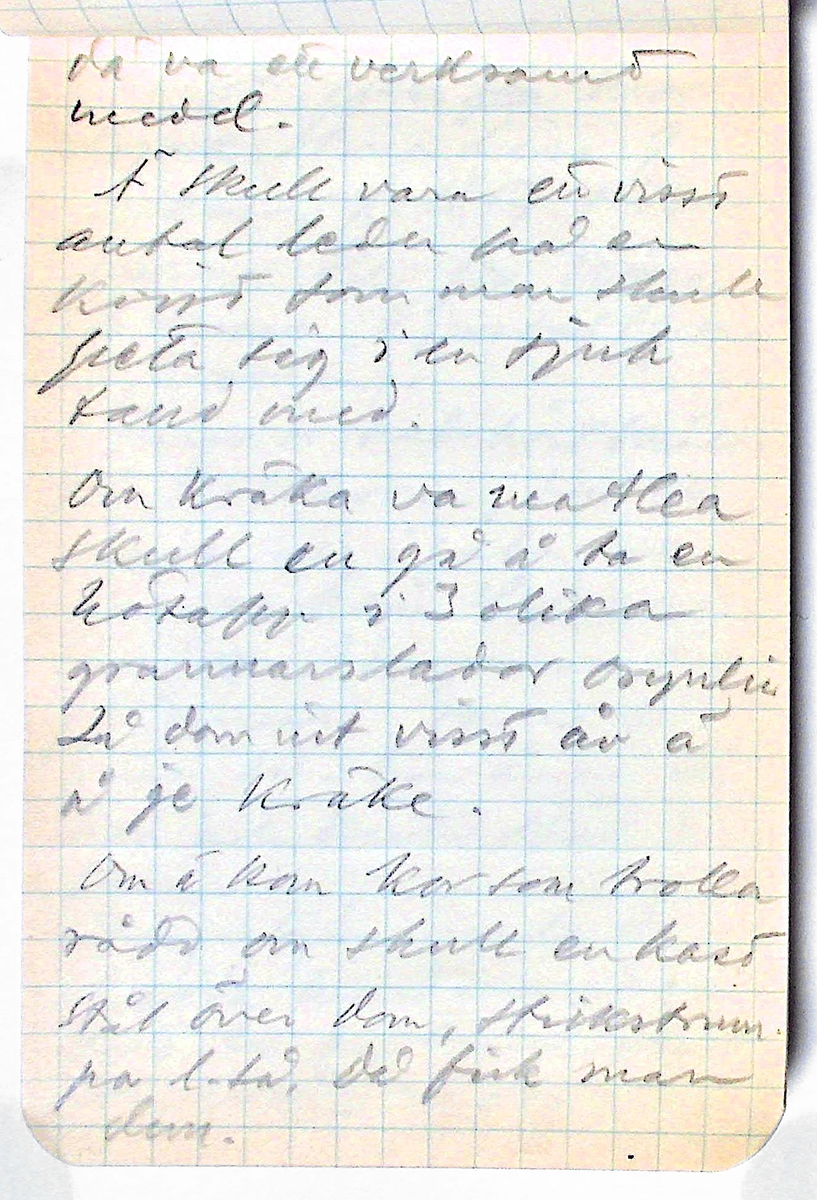 då va ett verksamt
medel.
Ä skull vara ett visst
antal leder på en
som man skull
peta sig i en sjuk
tand med.
Om Kräka va matlea
skull en gå å ta en
hötapp i 3 olika
grannarslador osynli
Så dom int visst åv ä
å je Kräke.
Om ä kom kor som trolla
rådd om skull en kast
stål över dom, strikstrum
pa l. så. Då fick man
dem.